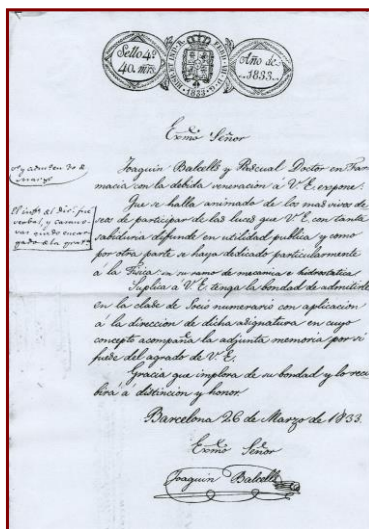 Sello 4º
40. mrs.
HISPANIAR. R. FERD. VII. D. G.
1833
Año de
1833.
Exmo Señor
Joaquin Balcells y Pascual Doctor en Far
macia con la debida veneracion á V.E. expone:
Que se halla animado de los mas vivos de
seos de participar de las luces que V.E. con tanta
sabiduria difunde en utilidad publica y como
por otra parte se haya dedicado particularmente
á la Fisica en su ramo de mecanica e hidrostatica
Suplica á V.E. tenga la bondad de admitirle
en la clase de Socio numerario con aplicacion
á la direccion de dicha asignatura en cuyo
concepto acompaña la adjunta memoria por si
fuese del agrado de V.E.
Gracia que implora de su bondad y lo reci
birá á distincion y honor
Barcelona 26 de Marzo de 1833.
Exmo Señor
Joaquin Balcells
30 de
marzo
verbal, y